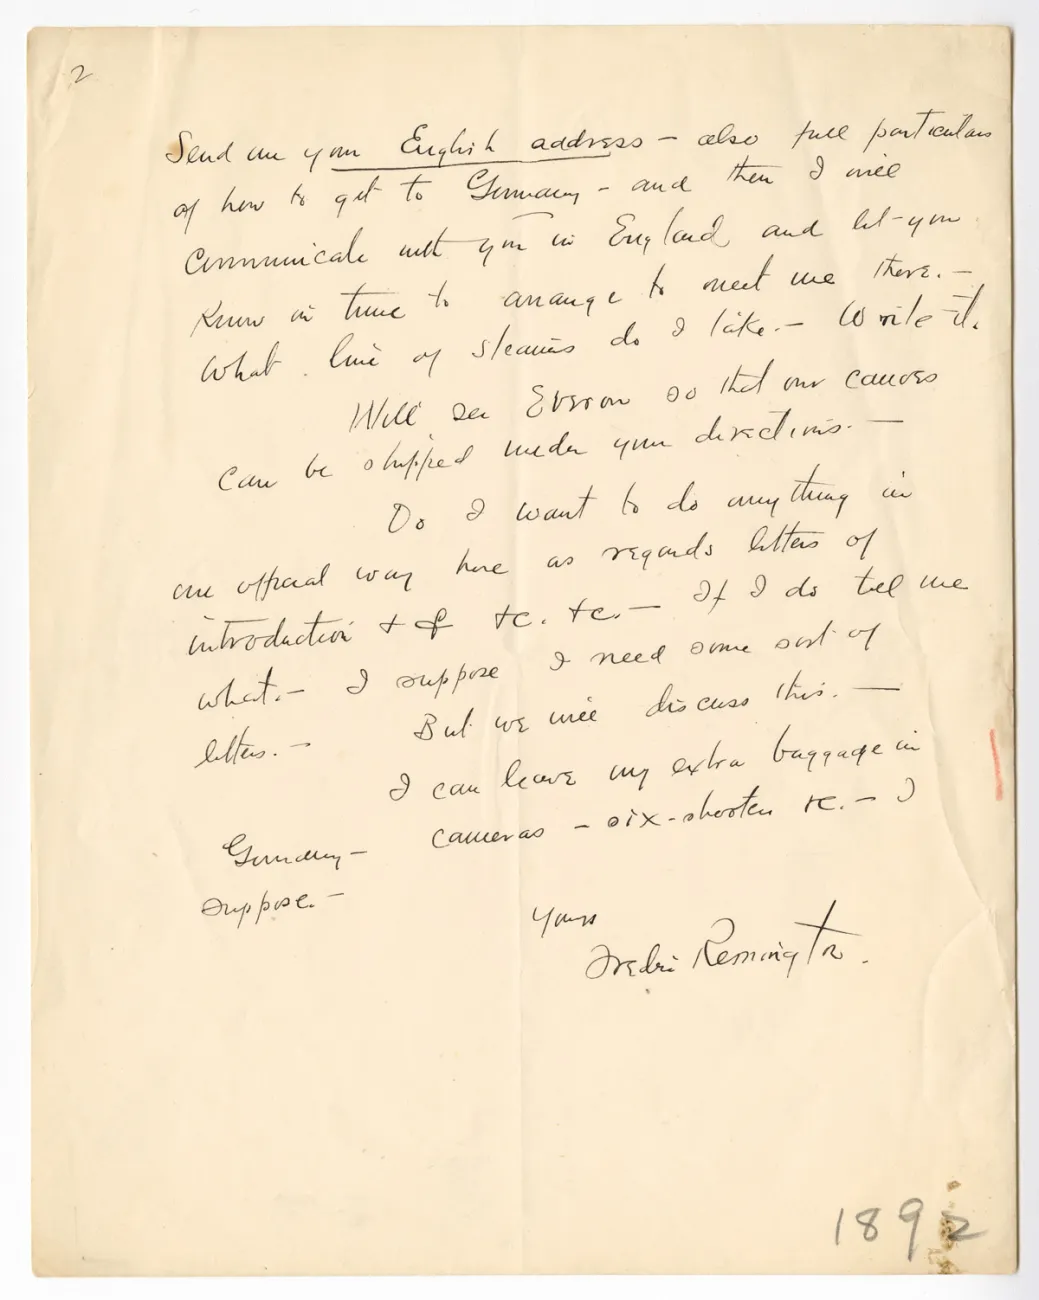 2
Send me your English address - also full particulars
of how to get to Germany - and then I will
communicate with you in England and let-you
know in time to arrange to meet me there. -
What line of steamers do I take. - Write it.
Will see Everson so that our canoes
can be shipped under your directions. -
Do I want to do anything in
an official way here as regards letters of
introduction + &c. &c. - If I do tell me
what. - I suppose I need some sort of
letters. - But we will discuss this. -
I can leave my extra baggage in
Germany - cameras - six-shooter &c. - I
suppose. -
Yours
Frederic Remington.
1892